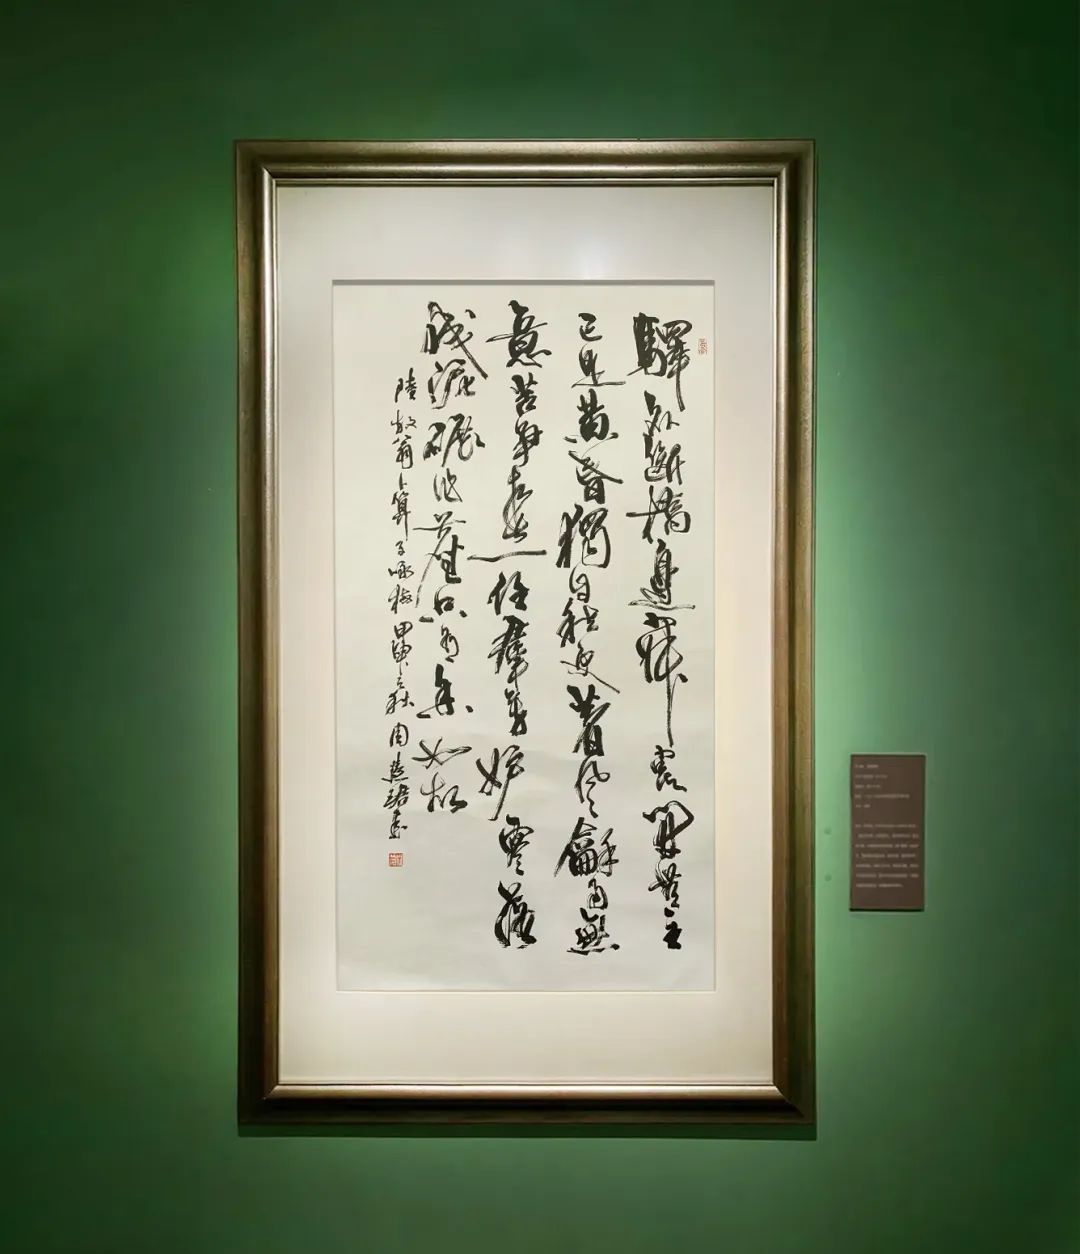 驛外斷橋邊寂寞開無主
已是黄昏獨自愁更著風龢雨無
意苦爭春一任羣芳妒零落
成泥碾作塵只有香如故
陸放翁卜算子咏梅甲申之秋周慧珺書